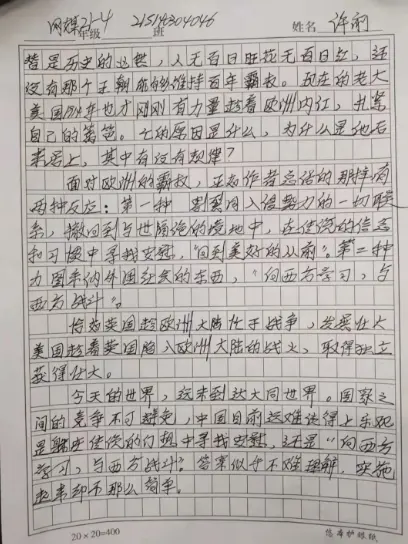 网媒21-4 年级 21514304046 班 姓名 许
皆是历史的必然，人无百日旺花无百日红，还
没有那个王朝能够维持百年霸权。现在的老大
美国1894年也才刚刚有力量趁着欧洲内红，扎紧
自己的篱笆。它的原因是什么，为什么是他后
来居上，其中有没有规律？
面对欧洲的霸权，正如作者总结的那样有
两种反应：第一种 割裂同入侵势力的一切联
系，撤回到与世隔绝的境地中，在传统的信念
和习惯中寻找安慰，“回到美好的从前”。第二种
力图采纳外国社会的东西，“向西方学习，与
西方战斗”。
恰如英国趁欧洲大陆忙于战争，发展壮大
美国趁着英国陷入欧洲大陆的战火，取得独立
获得壮大。
今天的世界，远未到达大同世界。国家之
间的竞争不可避免，中国目前还难谈得上乐观
是 在传统的幻想中寻找安慰，还是“向西方
学习，与西方战斗”？答案似乎不难理解，实施
起来却不那么简单。
20×20=400